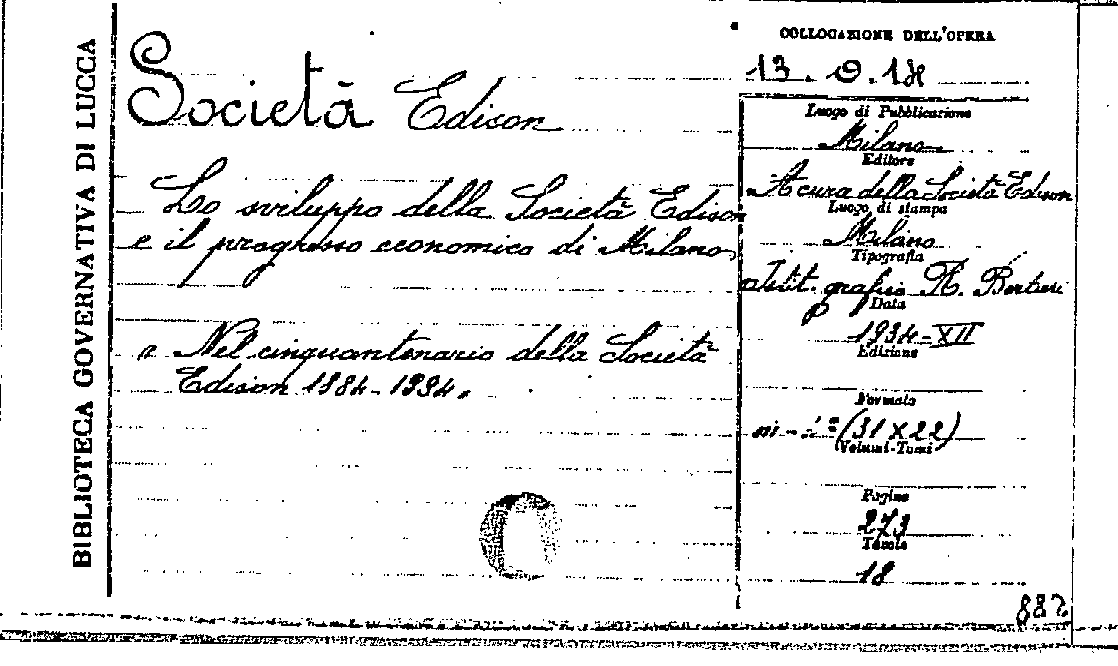 BIBLIOTECA GOVERNATIVA DI LUCCA
Società Edison
Lo sviluppo della Società Edison
e il progresso economico di Milano
Nel cinquantenario della Società
Edison 1884-1934.
COLLOCAZIONE DELL'OPERA
13. O. 14
Luogo di Pubblicazione
Milano
Editore
A cura della Società Edison
Luogo di stampa
Milano
Tipografia
Istit. grafico R. Bertieri
Data
1934-XII
Edizione
Formato
(31 X 22)
Volumi-Tomi
Pagine
273
Tavole
18
887